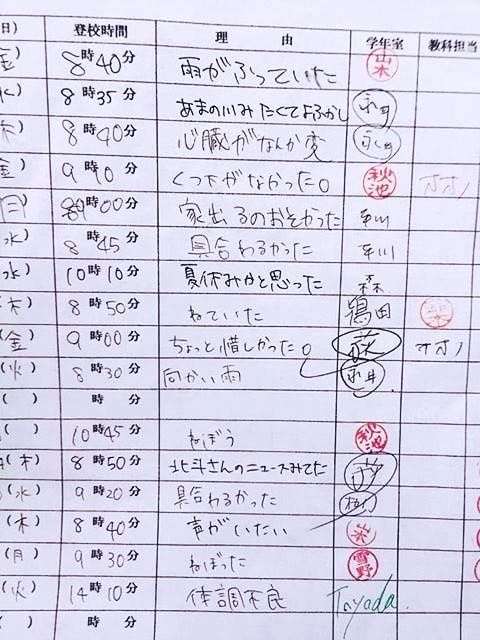 日) 登校時間 理 由 学年室 教科担当
金) 8時40分 雨がふっていた
水) 8時35分 あまの川みたくてよふかし 永井
木) 8時40分 心臓がなんか変
金) 9時10分 くつ下がなかった。 秋池 オオノ
月) 9時00分 家出るのおそかった 平川
水) 8時45分 具合わるかった 平川
水) 10時10分 夏休みかと思った 森
(木) 8時50分 ねていた 鴇田
(金) 9時00分 ちょっと惜しかった。 オオノ
(火) 8時30分 向かい雨 永井
( ) 時 分
( ) 10時45分 ねぼう 秋池
(木) 8時50分 北斗さんのニュースみてた
(水) 9時20分 具合わるかった
(木) 8時40分 声がいたい
(月) 9時30分 ねぼった 雪野
(火) 14時10分 体調不良 Toyoda.
( ) 時 分